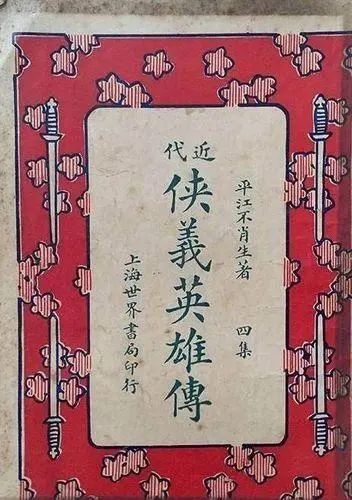 近代
俠義英雄傳
平江不肖生著
四集
上海世界書局印行